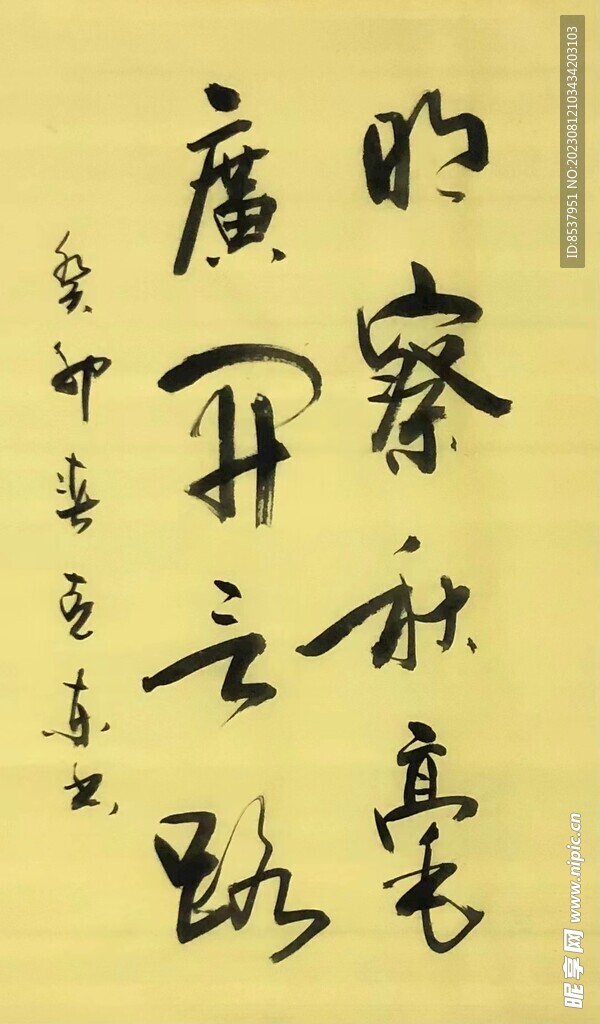 明察秋毫
廣開言路
癸卯春克东书
ID:8537951 NO:20230812103434203103
昵享网 www.nipic.cn